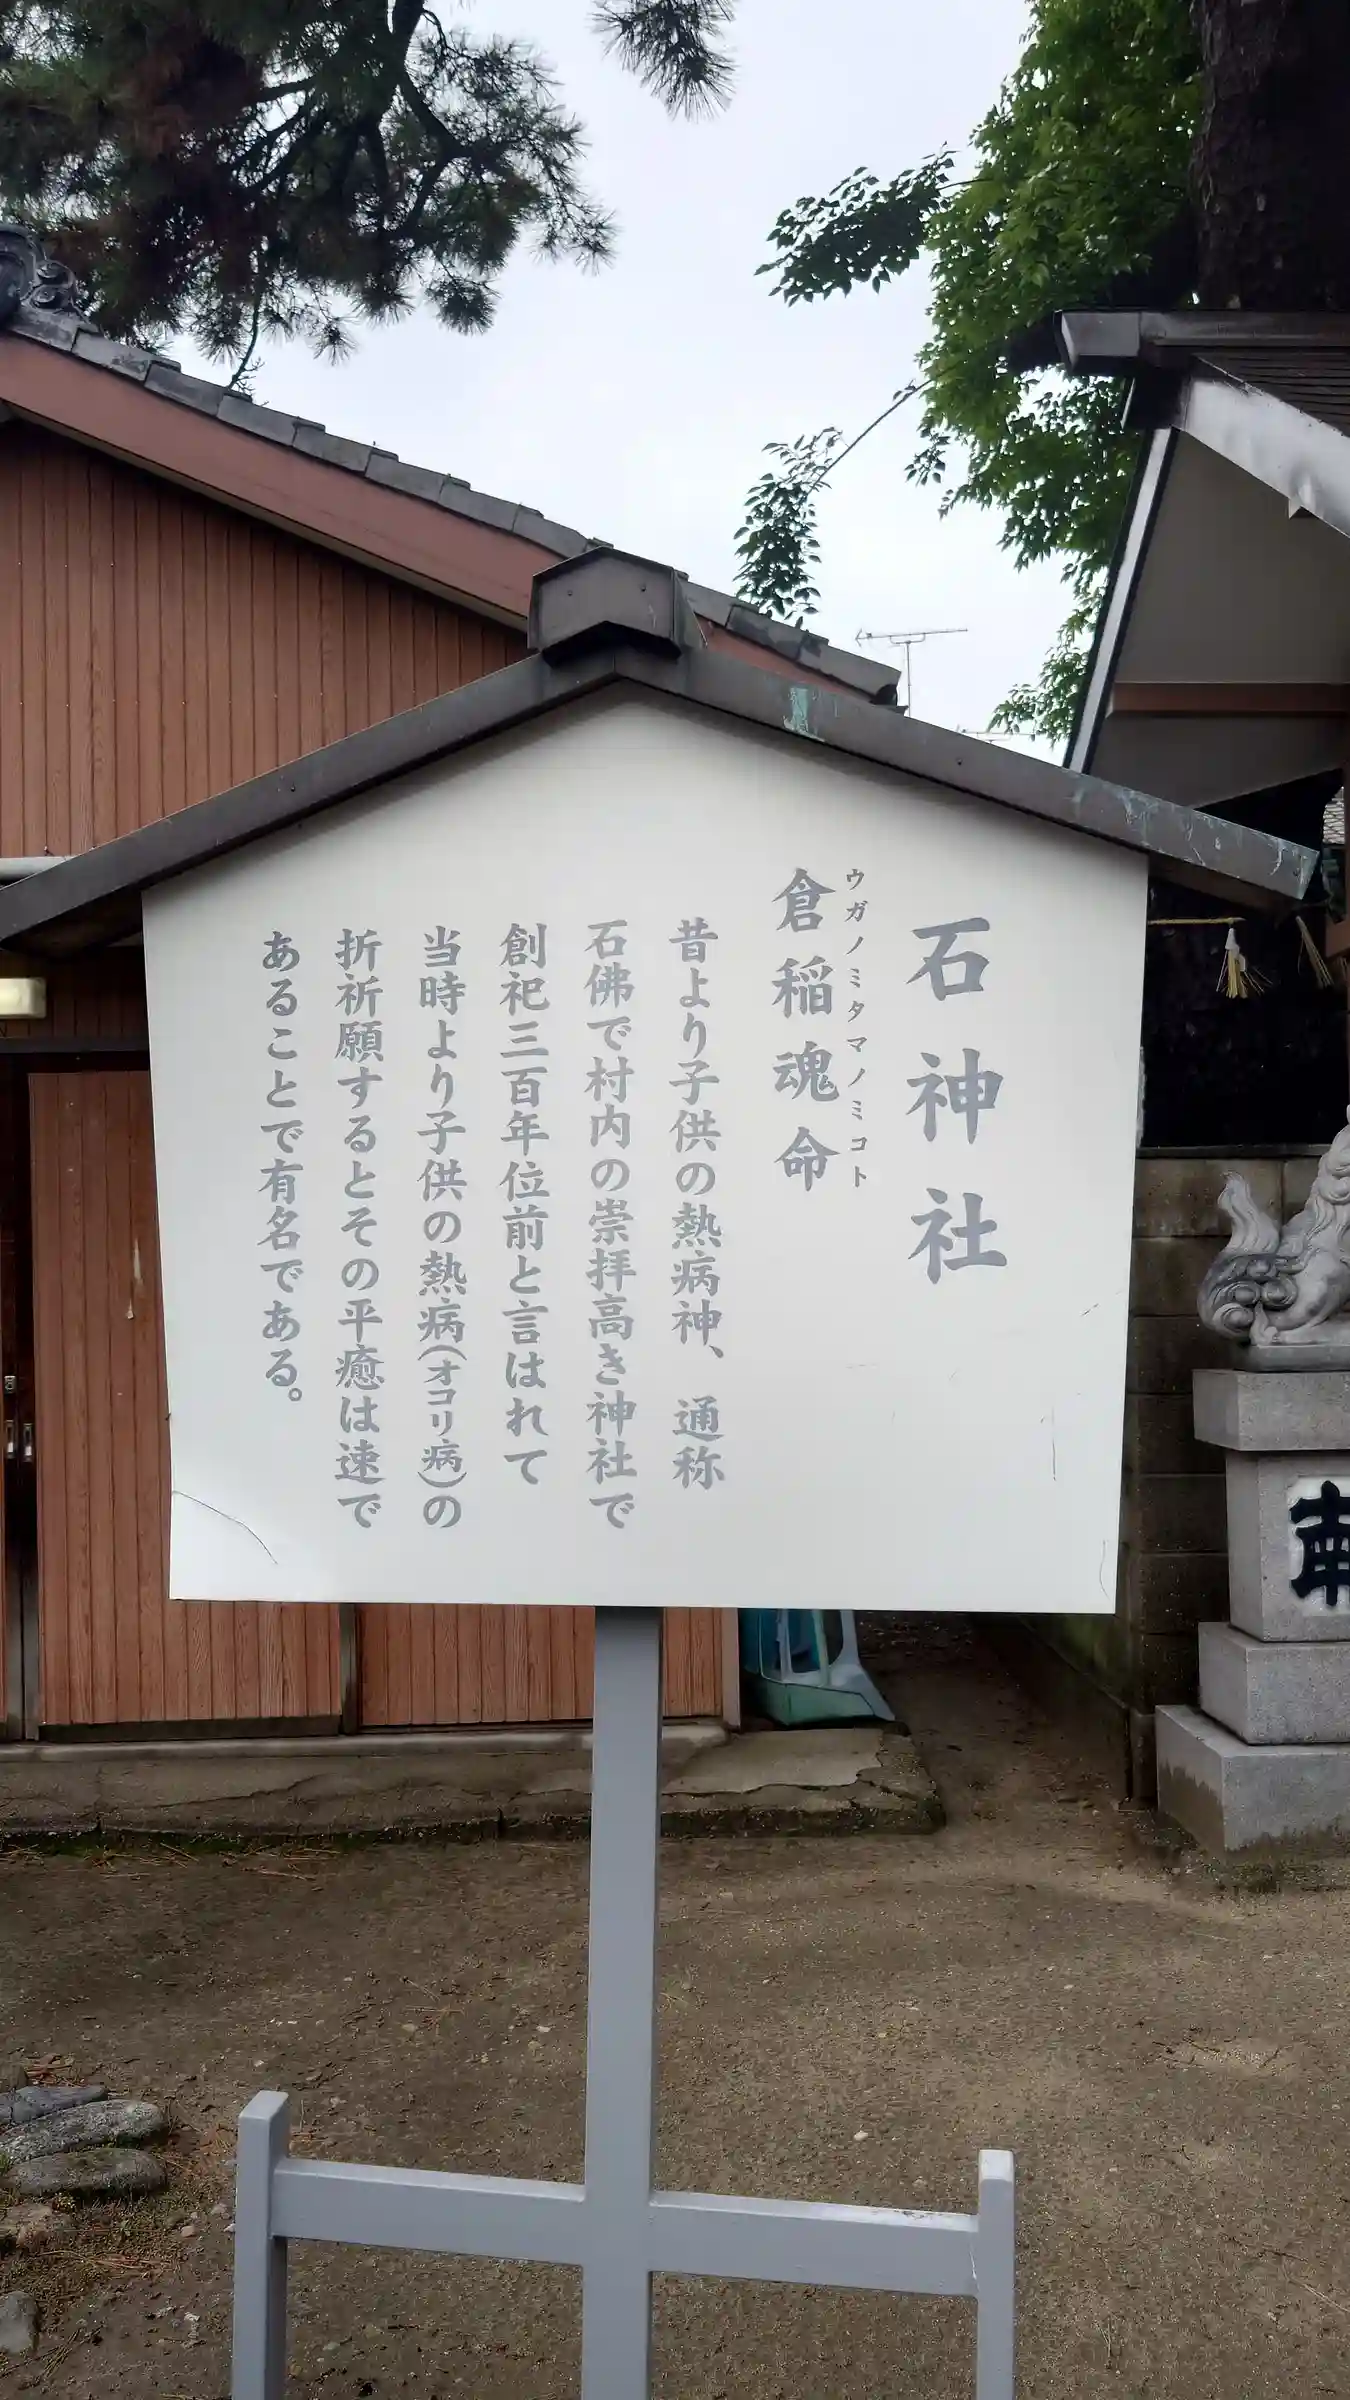 石神社
ウガノミタマノミコト
倉稲魂命
昔より子供の熱病神、通称
石佛で村内の崇拝高き神社で
創祀三百年位前と言はれて
当時より子供の熱病(オコリ病)の
折祈願するとその平癒は速で
あることで有名である。